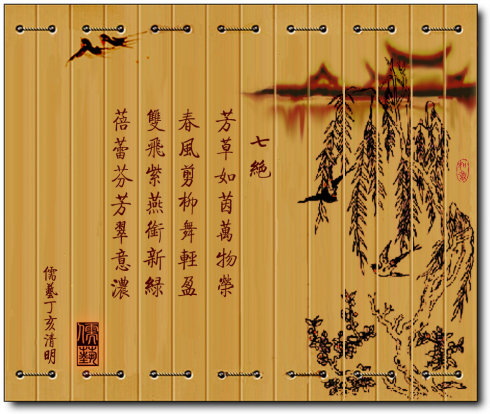 七絕
芳草如茵萬物榮
春風剪柳舞輕盈
雙飛紫燕銜新綠
蓓蕾芬芳翠意濃
儒藝丁亥清明
儒藝